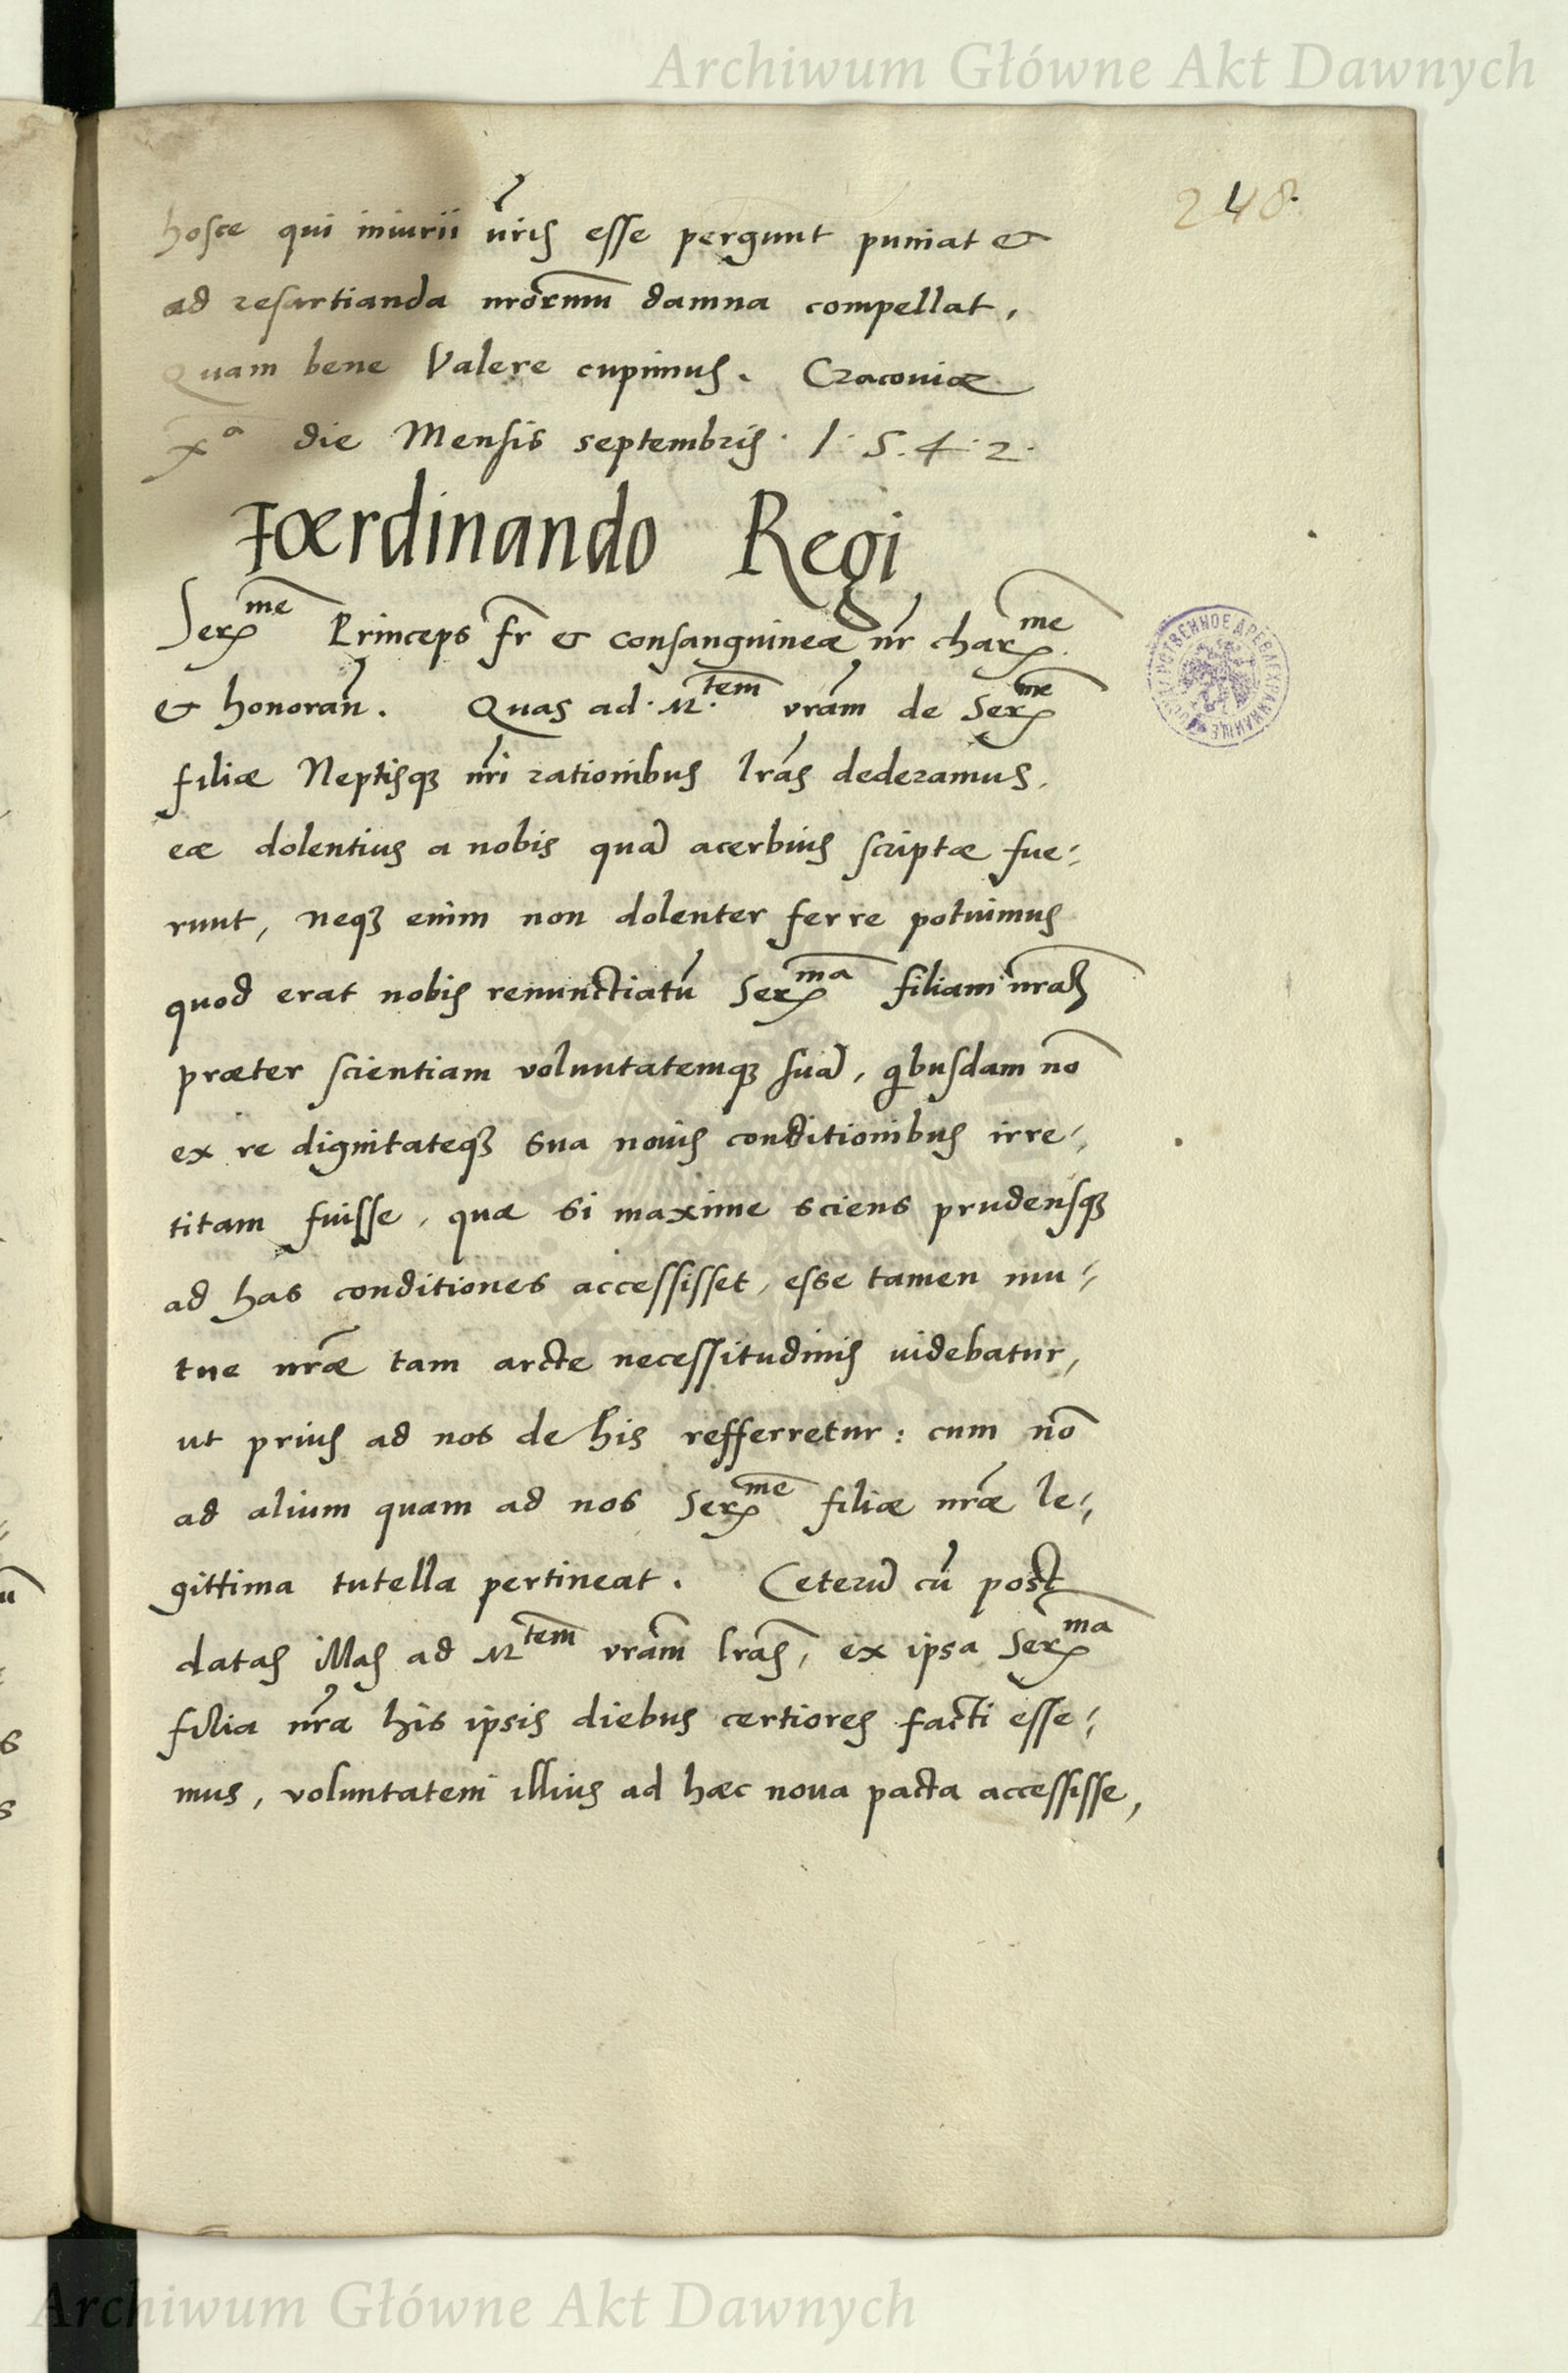 Archiwum Główne Akt Dawnych
248.
hosce qui iniurii nr̃is esse pergunt puniat &
ad resartianda nrõrum damna compellat,
Quam bene Valere cupimus. Cracoviæ
Xª die Mensis septembris · 1·5·4·2·
Fœrdinando Regi
Serme Princeps fr̃ & consanguineæ nr̃ charme
& honorañ. Quas ad M.tem vrãm de Serme
filiæ Neptisqꝫ nr̃i rationibus lrãs dederamus,
eæ dolentius a nobis quã acerbius scriptæ fue-
runt, neqꝫ enim non dolenter ferre potuimus
quod erat nobis renunctiatũ Serma filiam nrãm
præter scientiam voluntatemqꝫ suã, qibusdam nõ
ex re dignitateqꝫ sua novis conditionibus irre-
titam fuisse, quæ si maxime sciens prudensqꝫ
ad has conditiones accessisset, esse tamen mu-
tue nrãe tam arcte necessitudinis videbatur,
ut prius ad nos de his refferretur: cum nõ
ad alium quam ad nos Serme filiæ nrãe le-
gittima tutella pertineat. Ceterũ cũ post
datas illas ad Mtem vrãm lrãs, ex ipsa Serma
filia nr̃a his ipsis diebus certiores facti esse-
mus, voluntatem illius ad hæc nova pacta accessisse,
Archiwum Główne Akt Dawnych